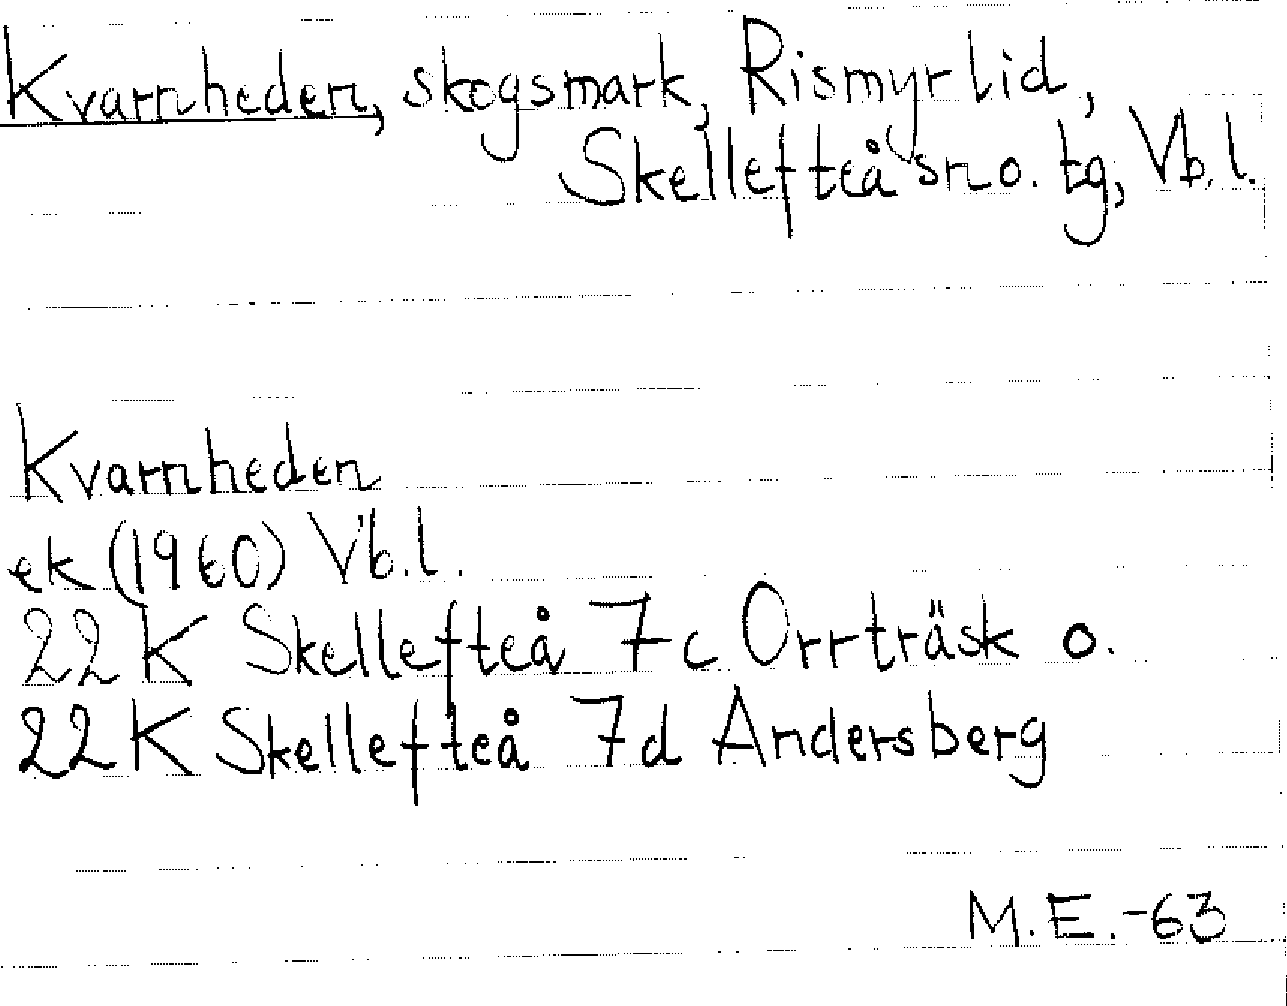 Kvarnheden, skogsmark, Rismyrlid,
Skellefteå sn o. tg, Vb. l.
Kvarnheden
ek (1960) Vb. l.
22 K Skellefteå 7c Orrträsk o.
22 K Skellefteå 7d Andersberg
M.E.-63